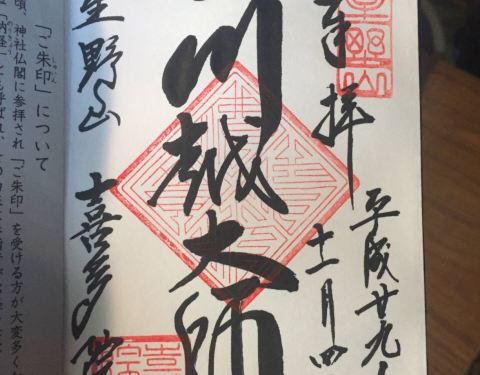 奉拝
平成廿九年
十一月四
川越大師
星野山 喜多院
「ご朱印」について
頃、神社仏閣に参拝され「ご朱印」を受ける方が大変多く
「納経」とも呼ばれ、